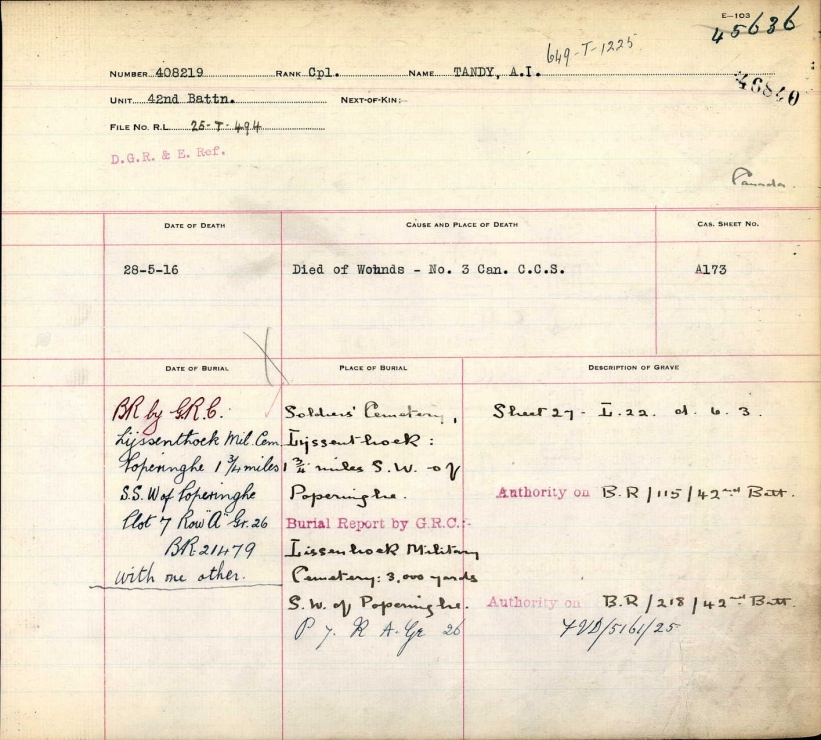 E—103
45636
649-T-1225
NUMBER 408219 RANK Cpl. NAME TANDY, A.I.
46840
UNIT 42nd Battn. NEXT-OF-KIN:—
FILE NO. R.L. 25-T-494
D.G.R. & E. Ref.
Canada.
DATE OF DEATH CAUSE AND PLACE OF DEATH CAS. SHEET NO.
28-5-16 Died of Wounds - No. 3 Can. C.C.S. A173
DATE OF BURIAL PLACE OF BURIAL DESCRIPTION OF GRAVE
BR by G.R.C.
Lijssenthock Mil. Cem.
Poperinghe 1 3/4 miles
S.S.W of Poperinghe
Plot 7 Row "A" Gr. 26
BR 21479
with one other.
Soldiers' Cemetery,
Lijssenthock:
1 3/4 miles S.W. of
Poperinghe.
Burial Report by G.R.C.:-
Lissenhock Military
Cemetery: 3,000 yards
S.W. of Poperinghe.
P 7. R A. Gr 26
Sheet 27 - L. 22. d. 6. 3.
Authority on B.R/115/42nd Batt.
Authority on B.R/218/42nd Batt.
/5161/25